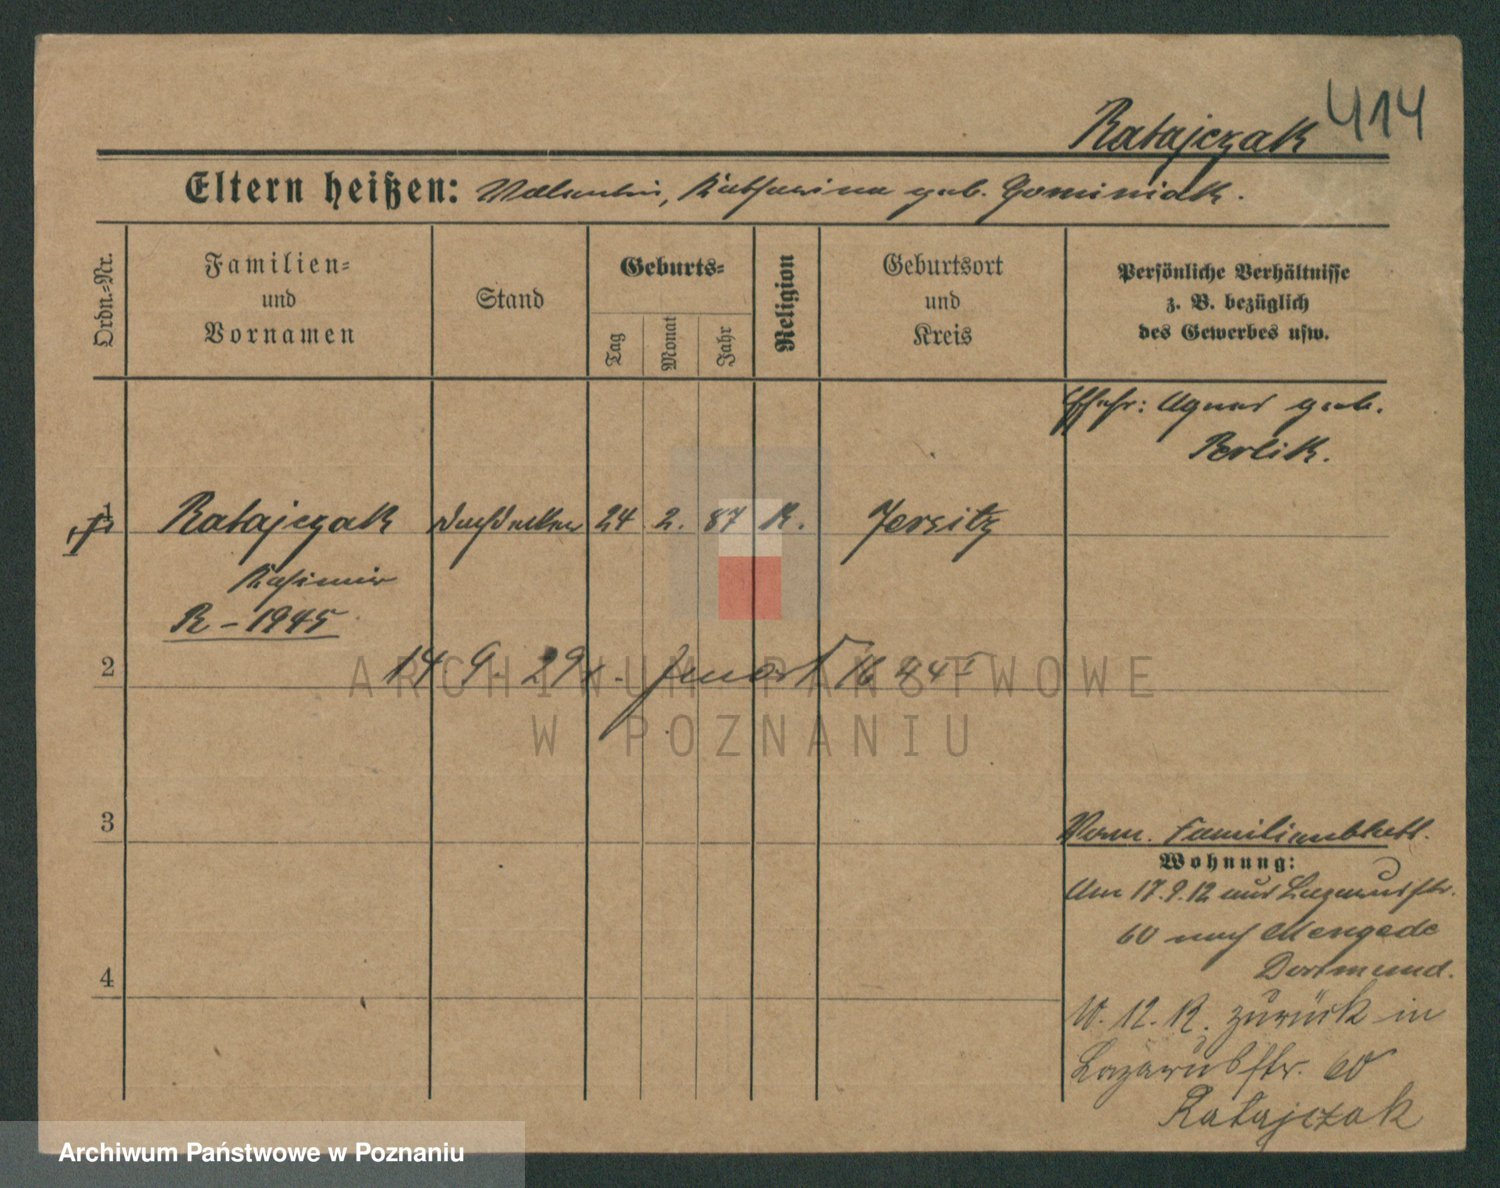 414
Ratajczak
Eltern heißen: Valentin, Katharina geb. Dominiak.
Ordn.-Nr.
Familien-
und
Vornamen
Stand
Geburts-
Tag
Monat
Jahr
Religion
Geburtsort
und
Kreis
Persönliche Verhältnisse
z. B. bezüglich
des Gewerbes usw.
Ehefr: Agnes geb.
Perlik.
1 Ratajczak Dachdecker 24 2. 87 K. Jersitz
Kasimir
R - 1945
2
14 9. 29
3
Vorm. Familienblatt.
Wohnung:
Am 17.9.12 aus Lazarusstr.
60 nach Mengede
Dortmund.
4
10. 12. 12. zurück in
Lazarusstr. 60
Ratajczak
ARCHIWUM PAŃSTWOWE
W POZNANIU
Archiwum Państwowe w Poznaniu